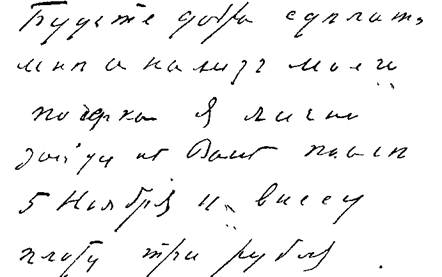 Будете добры сделать
мне анализ моего
почерка Я лично
зайду к Вам после
5 Ноября и внесу
плату три рубля.